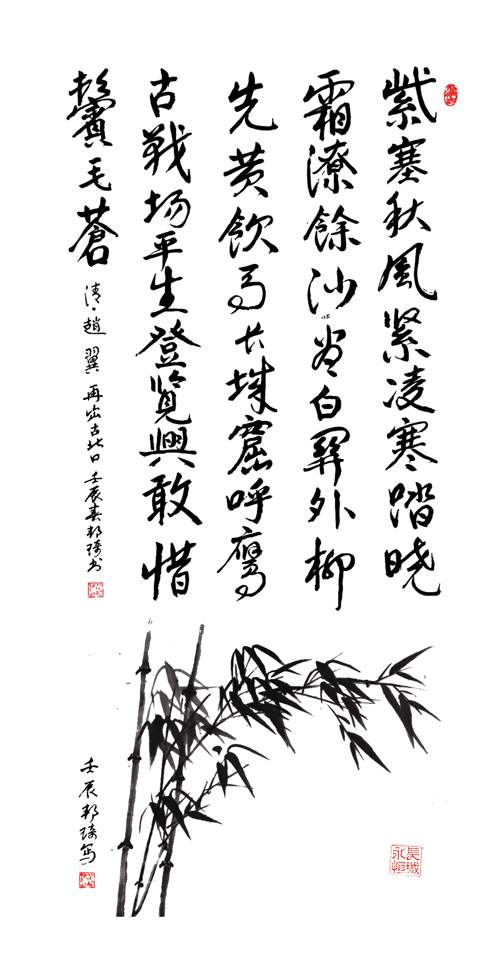 紫塞秋風緊凌寒踏晓
霜潦餘沙白關外柳
先黄飲馬长城窟呼鷹
古戰场平生登覽興敢惜
鬢毛蒼
清·趙翼再出古北口 壬辰春邦琦书
壬辰邦琦写
長城
永恒